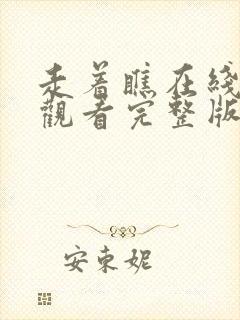 走着瞧在线
觀看完整版
安東妮